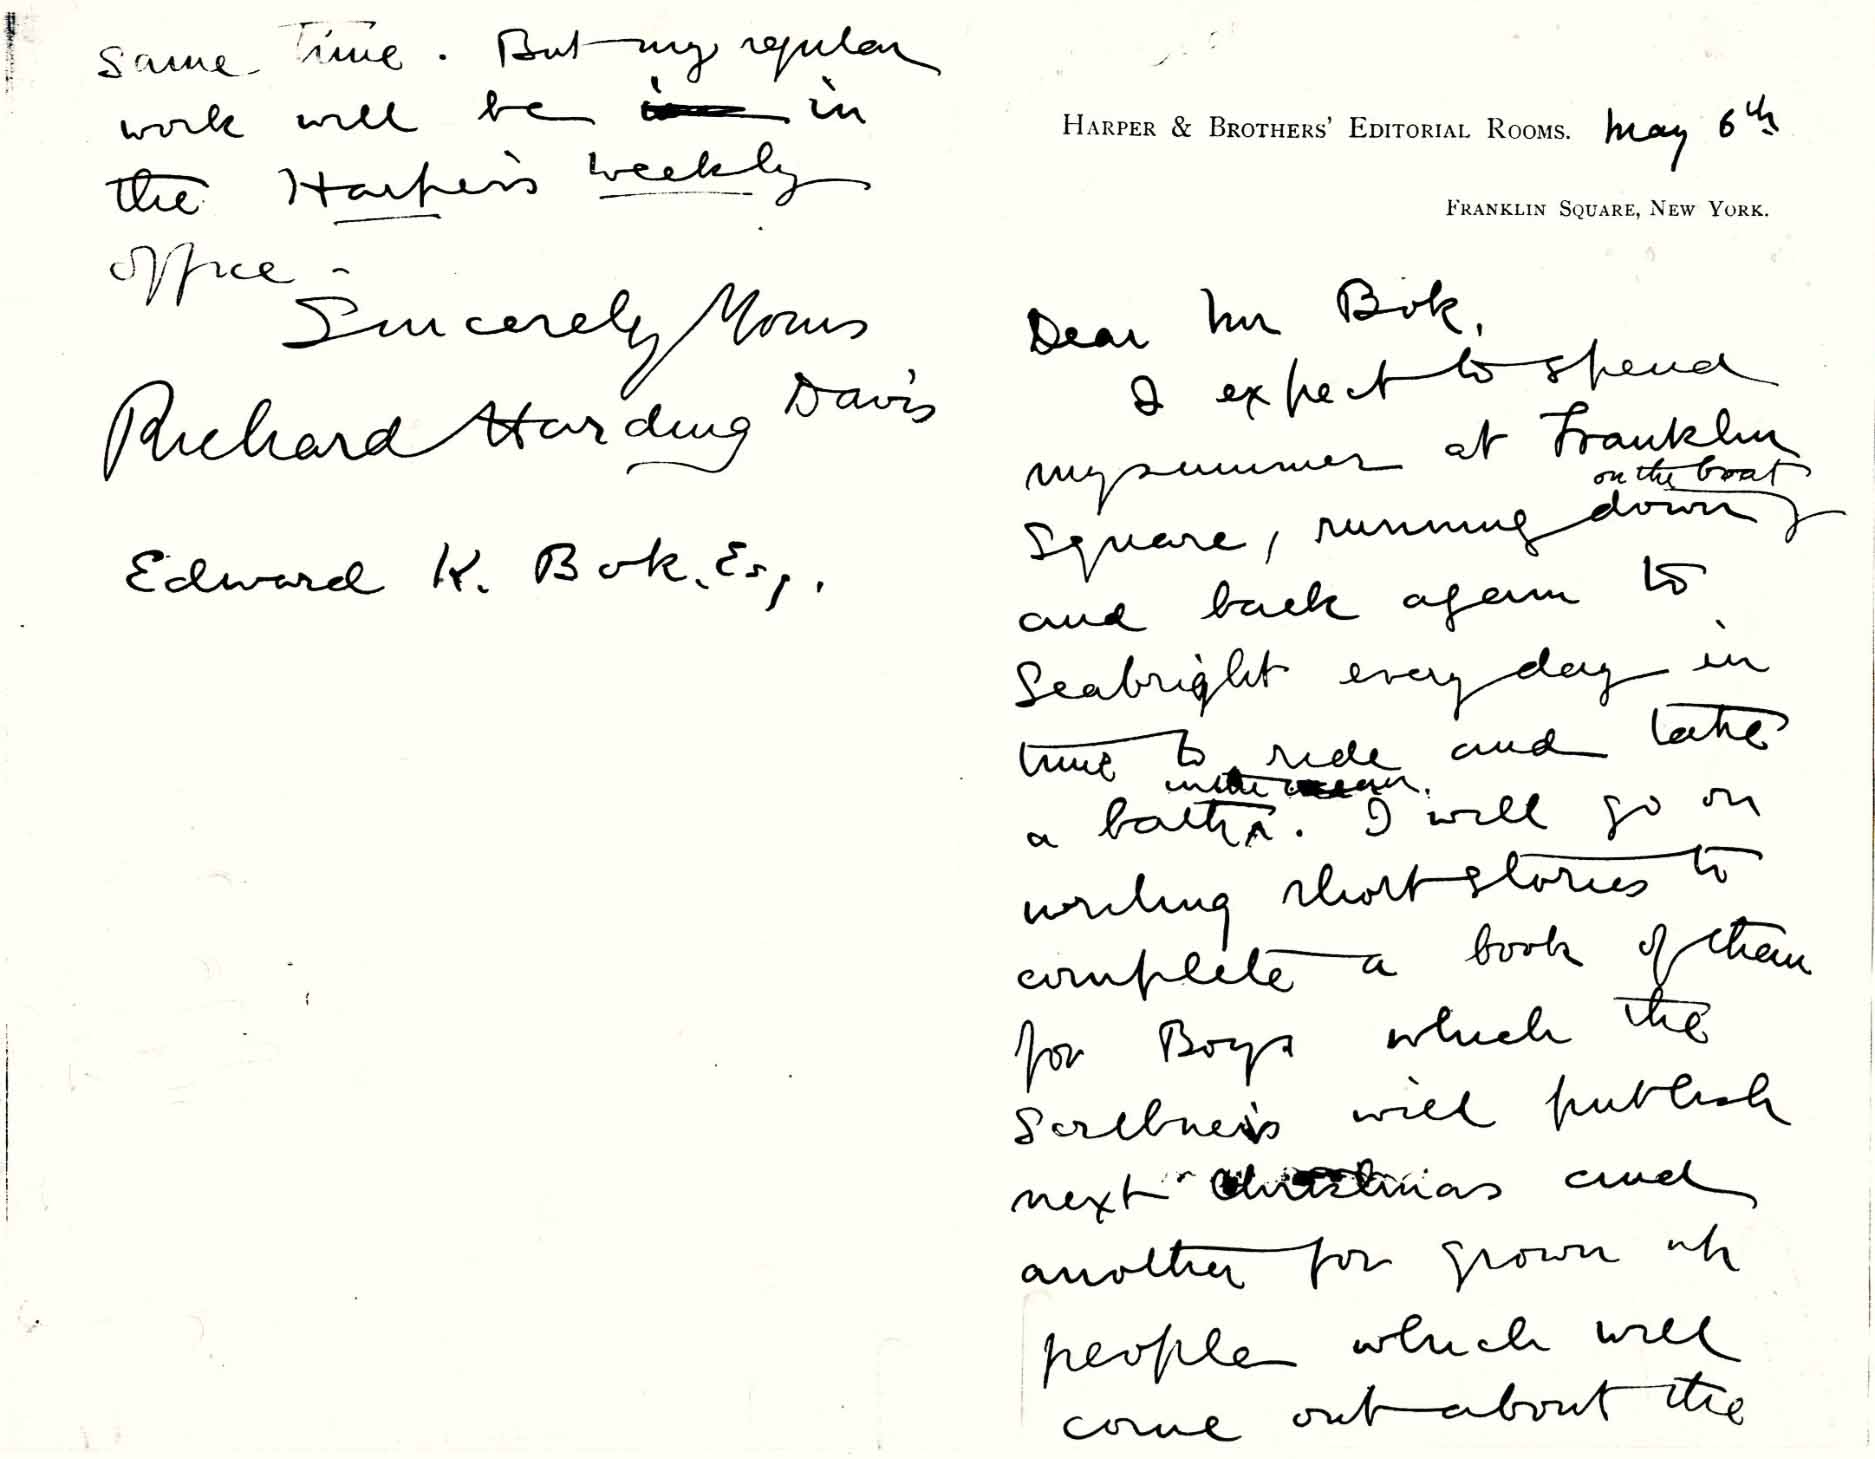 HARPER & BROTHERS' EDITORIAL ROOMS. May 6th
FRANKLIN SQUARE, NEW YORK.
Dear Mr Bok,
I expect to spend
my summer at Franklin
on the boat
Square, running down
and back again to
Seabright every day in
time to ride and take
in the ocean
a bath. I will go on
writing short stories to
complete a book of them
for Boys which the
Scribner's will publish
next Christmas and
another for grown up
people which will
come out about the
same time. But my regular
work will be in
the Harper's Weekly
office.
Sincerely Yours
Richard Harding Davis
Edward K. Bok. Esq.